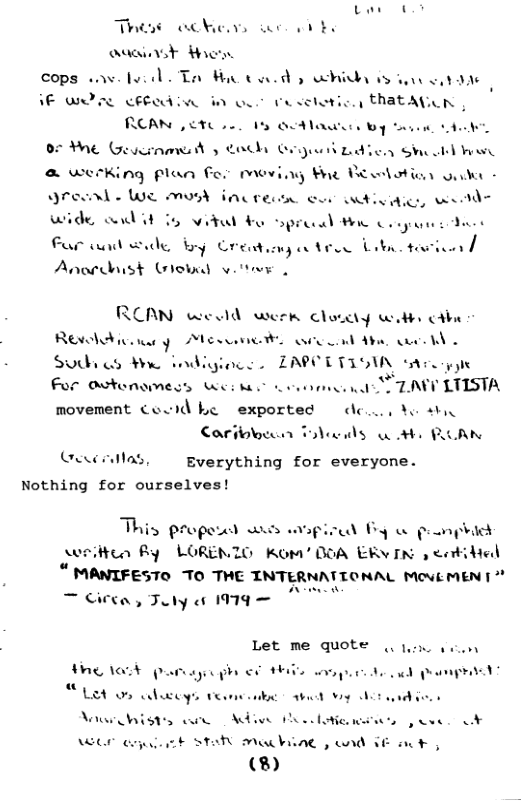 These actions
against those
cops involved. In the event, which is inevitable,
if we're effective in our revolution, that Alien,
RCAN, etc... is outlawed by some state
or the Government, each organization should have
a working plan for moving the Revolution under-
ground. We must increase our activities world-
wide and it is vital to spread the organization
far and wide by creating a true Libertarian/
Anarchist Global village.
RCAN would work closely with other
Revolutionary Movements around the world.
Such as the indigineos ZAPPITISTA struggle
for autonomeos the ZAPPITISTA
movement could be exported down to the
Caribbean islands with RCAN
Guerrillas. Everything for everyone.
Nothing for ourselves!
This proposal was inspired by a pamphlet
written By LORENZO KOM'BOA ERVIN, entitled
"MANIFESTO TO THE INTERNATIONAL MOVEMENT"
- Circa, July of 1979 -
Let me quote a line from
the last paragraph of this inspirational pamphlet:
"Let us always remember that by definition
Anarchists are Active Revolutionaries, ever at
war against state machine, and if not,
(8)